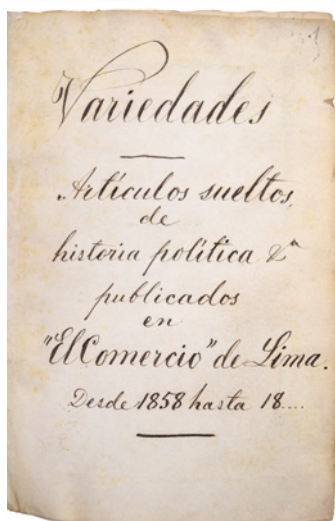 Variedades
Artículos sueltos,
de
historia política &ª
publicados
en
"El Comercio" de Lima.
Desde 1858 hasta 18....